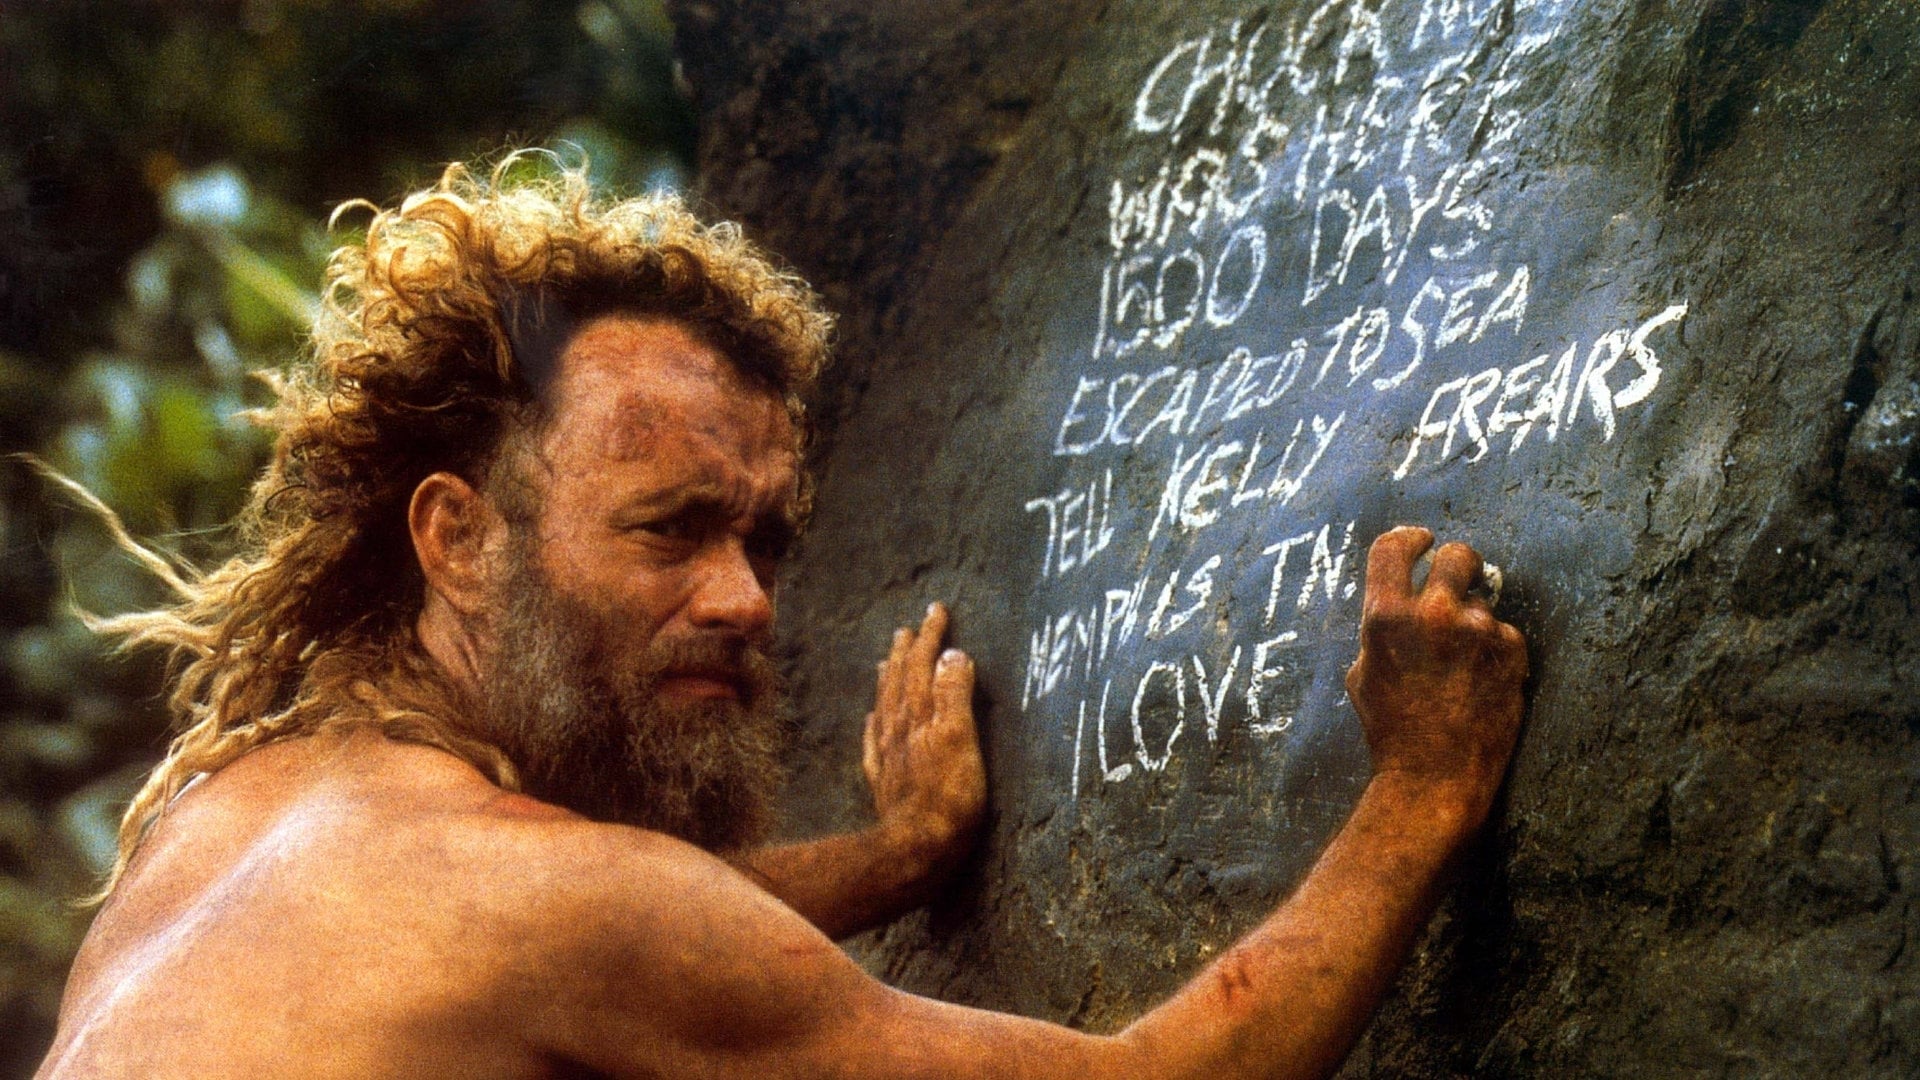 CHUCK
WAS HERE
1500 DAYS
ESCAPED TO SEA
TELL KELLY FREARS
MEMPHIS TN.
I LOVE